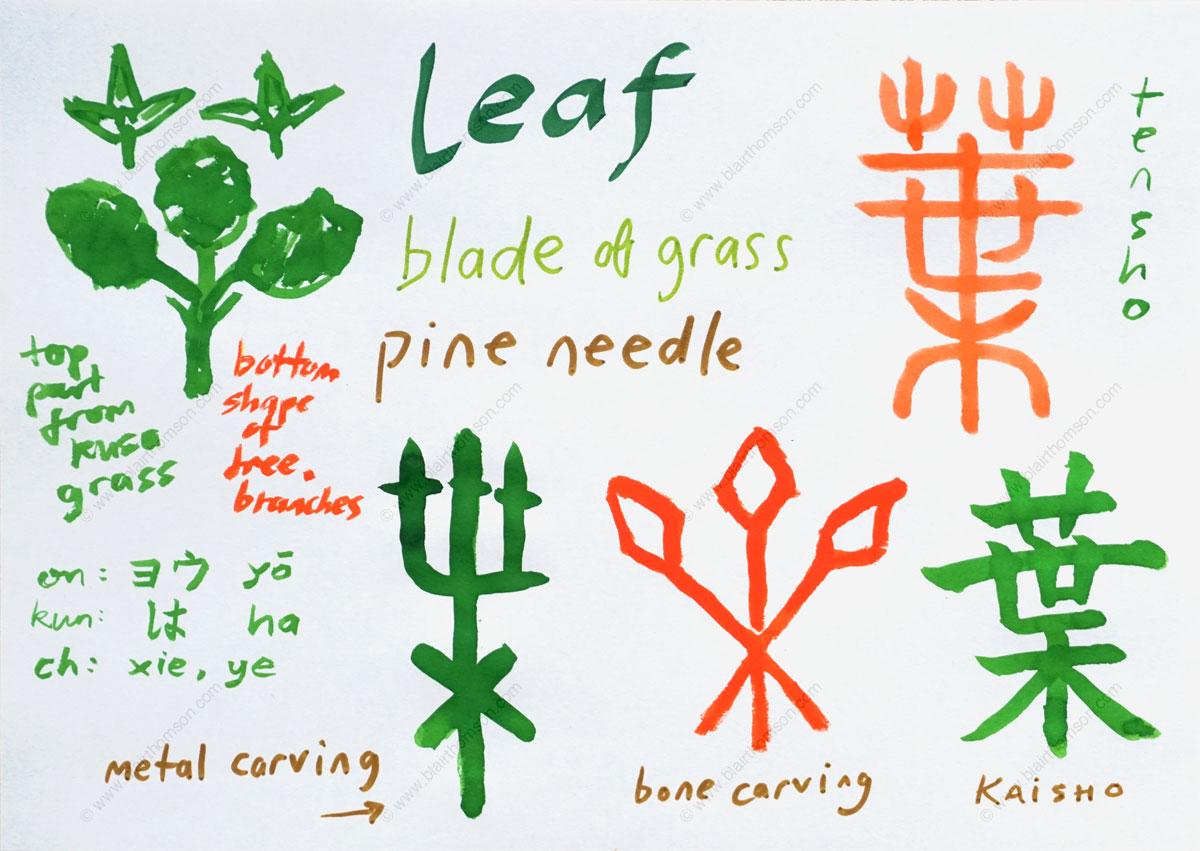 leaf
blade of grass
pine needle
葉
tensho
top
part
from
kusa
grass
bottom
shape
of
tree.
branches
on: ヨウ yō
kun: は ha
ch: xie, ye
metal carving
→
bone carving
葉
KAISHO
© www.blairthomson.com